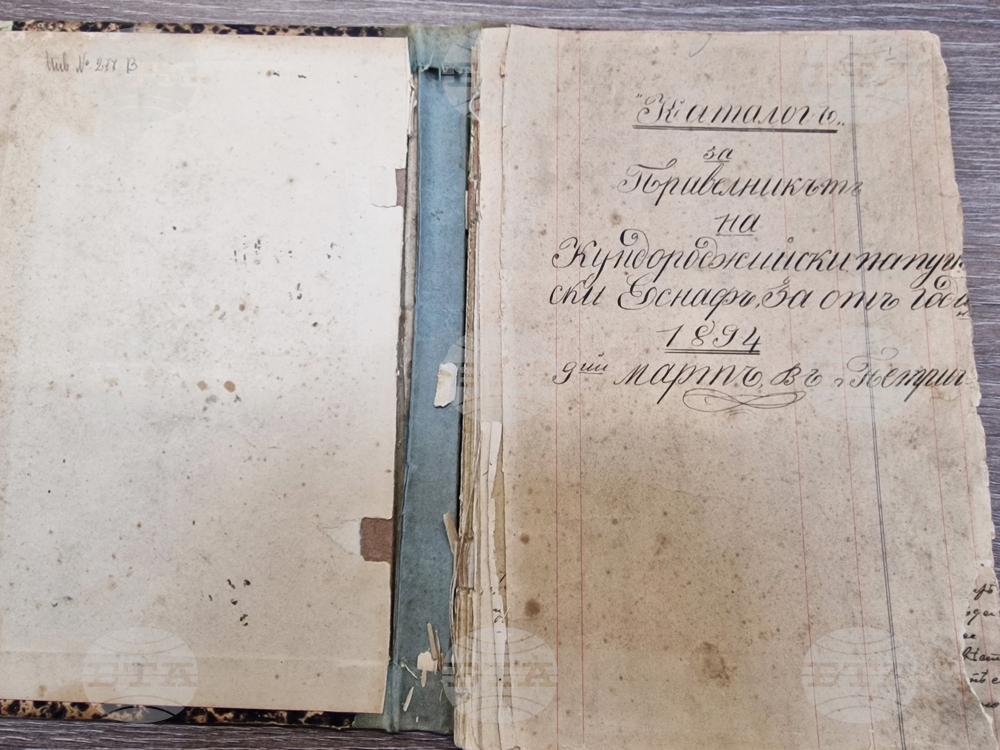 Инв. № 277 В
"Каталогъ„
за
Привелникътъ
на
Кундораджийски папуд
ски Еснафъ, За отъ год
1894
9ий мартъ, Въ
БТА